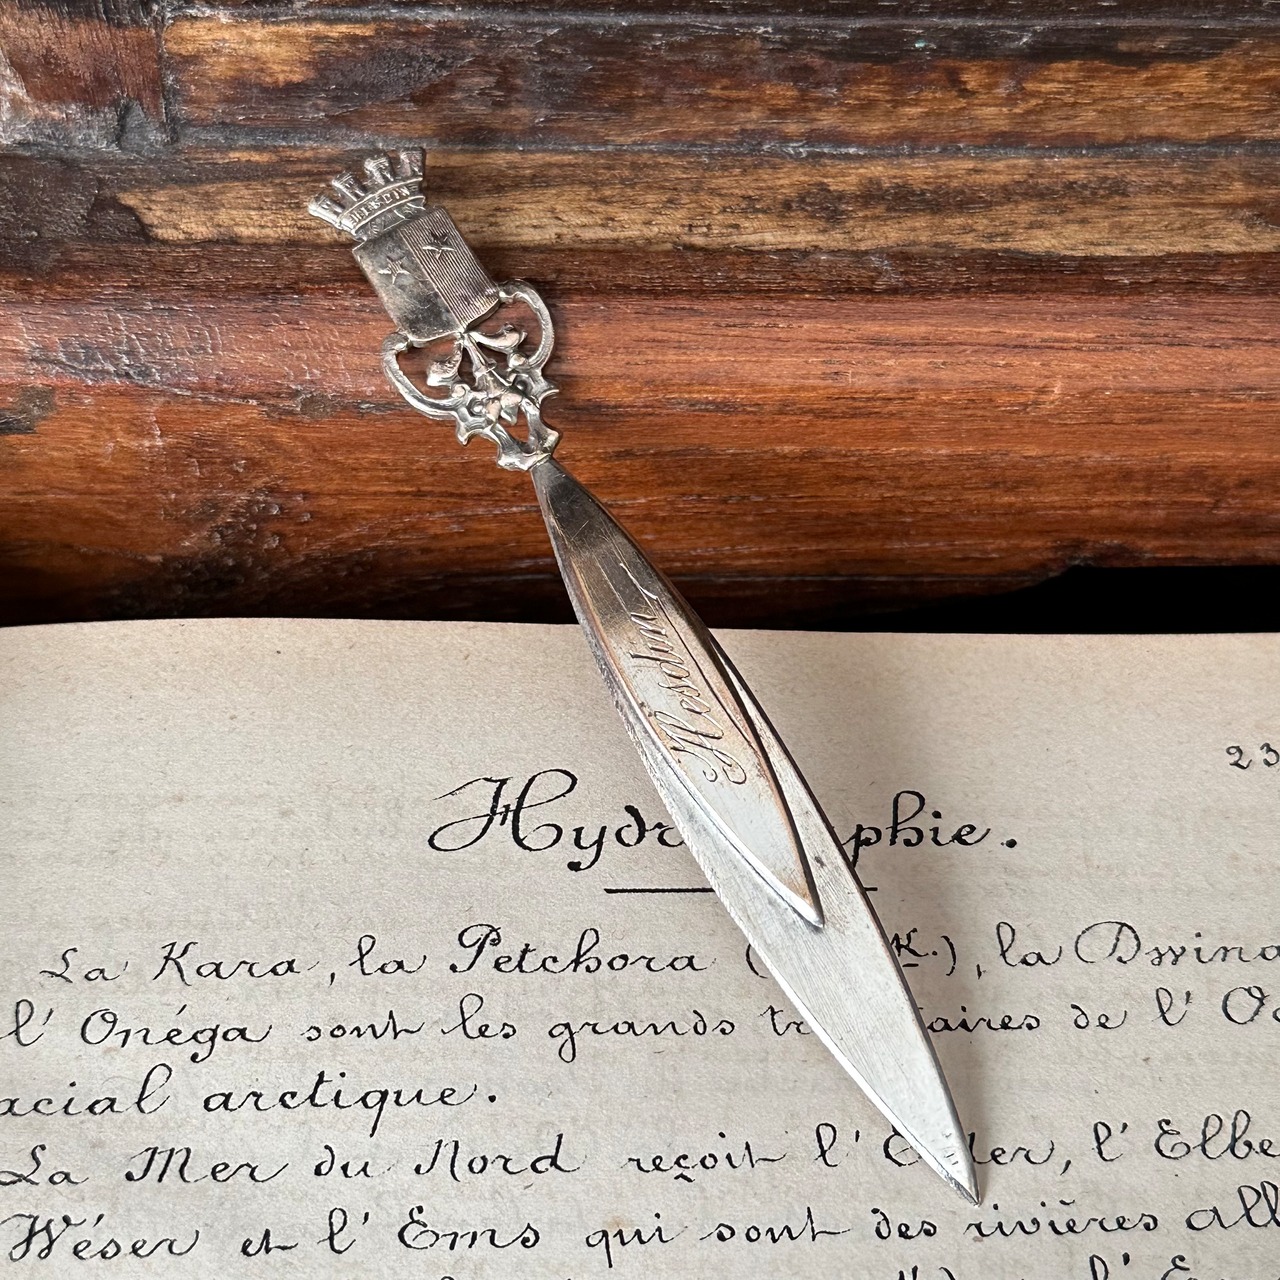 HESDIN
Hesdin
23
Hydr phie.
La Kara, la Petchora ( K.), la Dwina
l'Onéga sont les grands tr aires de l'Oc
acial arctique.
La Mer du Nord reçoit l'E der, l'Elbe
Wéser et l'Ems qui sont des rivières all